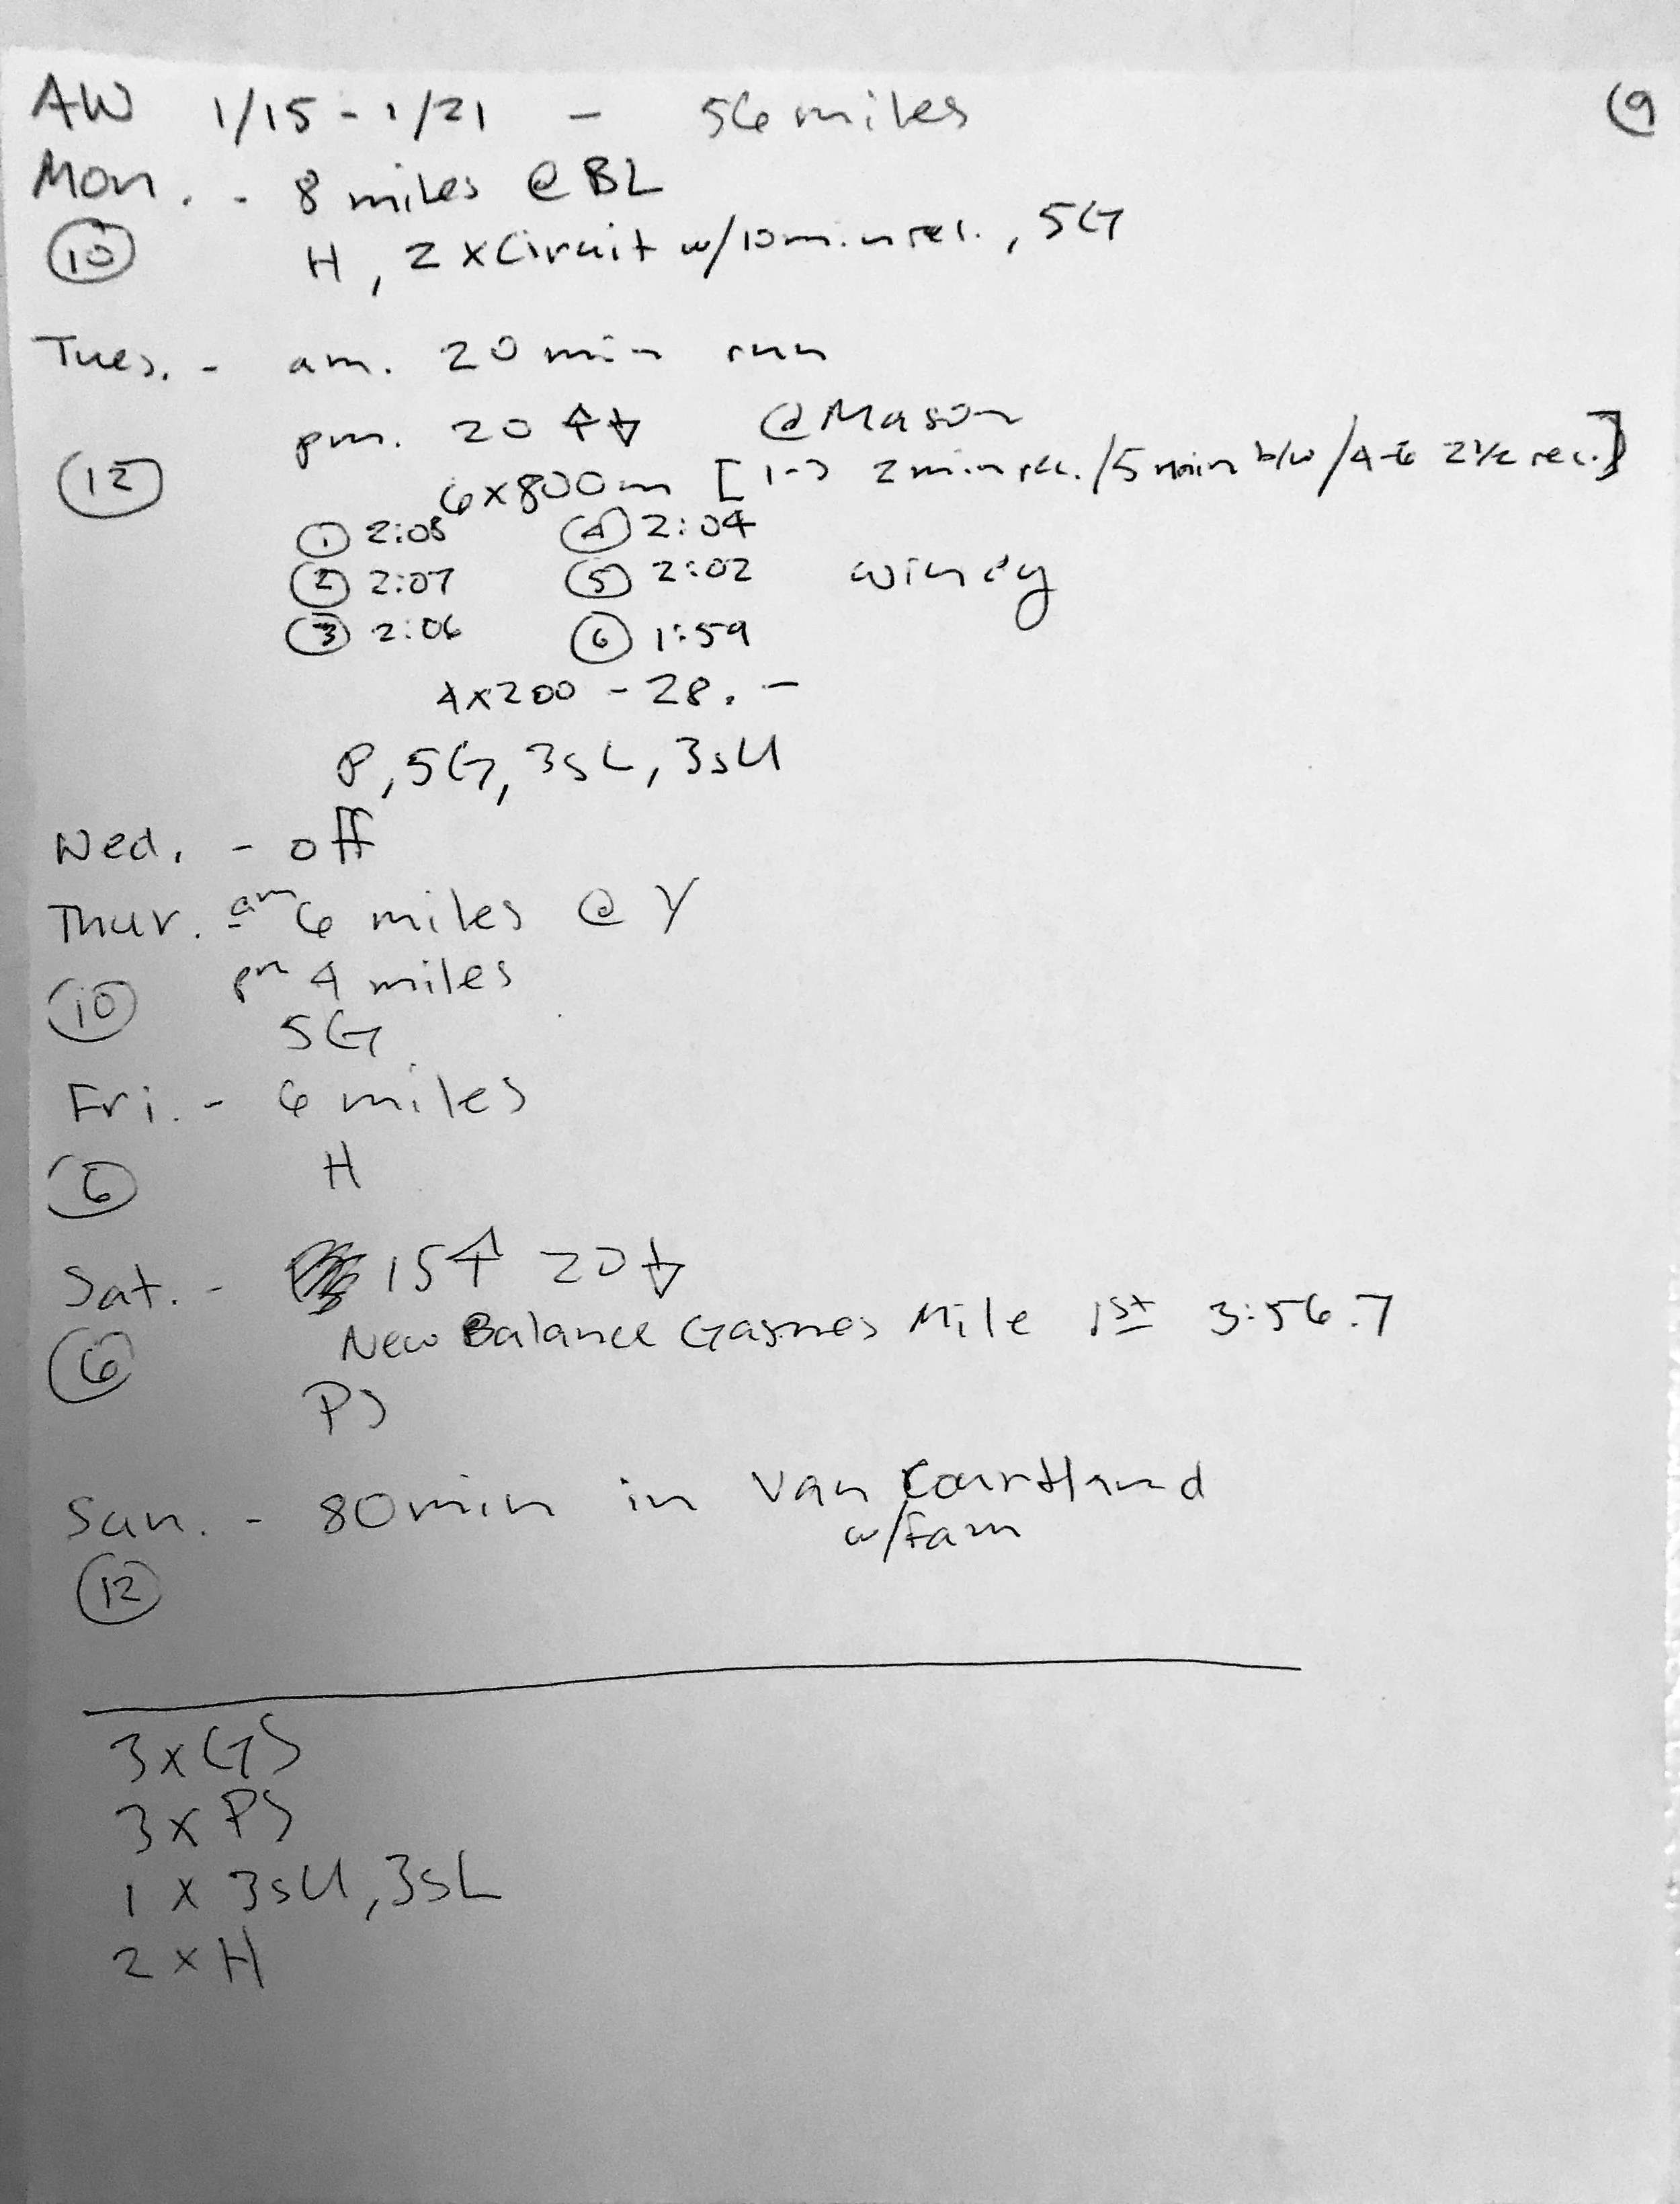 AW 1/15 - 1/21 - 56 miles (9
Mon. - 8 miles @ BL
(10) H, 2 x Circuit w/ 10 min rec., 5G
Tues. - am. 20 min run
pm. 20 ↑↓ @ Mason
(12) 6x800m [1-3 2 min rec. / 5 min b/w / 4-6 2 1/2 rec.]
① 2:08 ④ 2:04
② 2:07 ⑤ 2:02 windy
③ 2:06 ⑥ 1:59
4x200 - 28. -
P, 5G, 3sL, 3sU
Wed. - off
Thur. am 6 miles @ Y
pm 4 miles
(10)
5G
Fri. - 6 miles
(6) H
Sat. - 15↑ 20↓
New Balance Games Mile 1st 3:56.7
(6)
PS
Sun. - 80 min in Van Courtland
w/fam
(12)
3xGS
3x PS
1 x 3sU, 3sL
2 x H